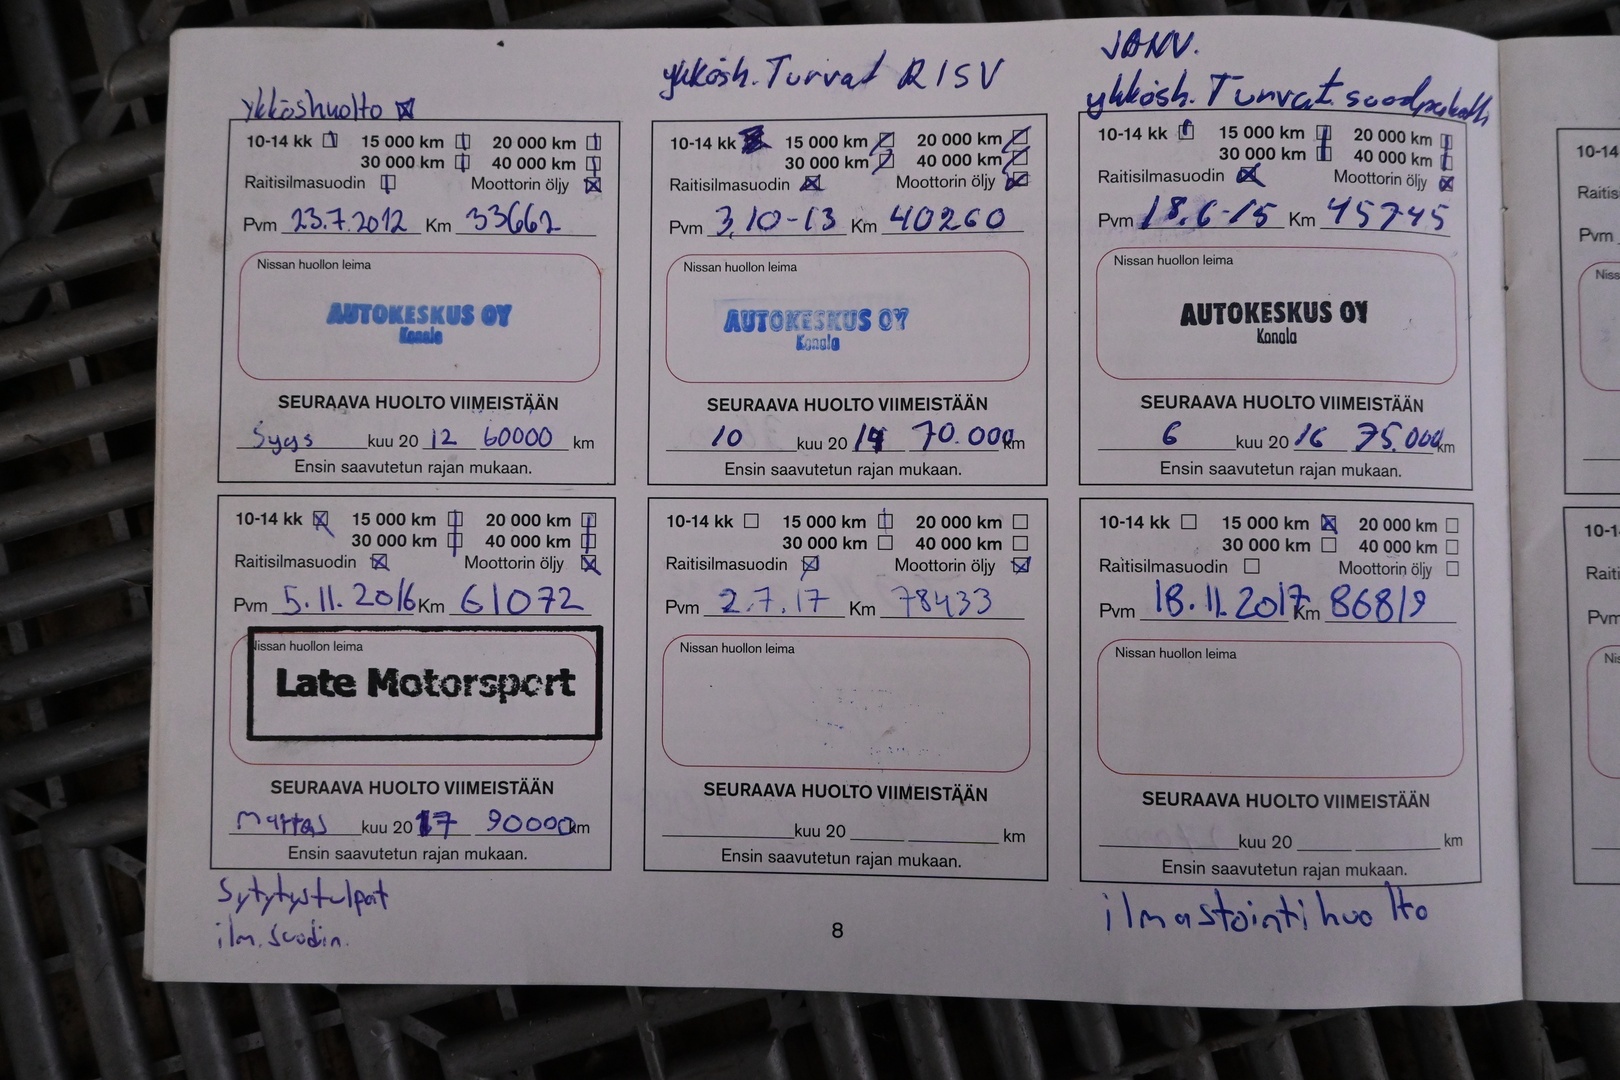 ykköshuolto
10-14 kk 15 000 km 20 000 km
30 000 km 40 000 km
Raitisilmasuodin Moottorin öljy
Pvm 23.7.2012 Km 33662
Nissan huollon leima
AUTOKESKUS OY
Konala
SEURAAVA HUOLTO VIIMEISTÄÄN
Syys kuu 20 12 60000 km
Ensin saavutetun rajan mukaan.
ykkösh. Turvat RISV
10-14 kk 15 000 km 20 000 km
30 000 km 40 000 km
Raitisilmasuodin Moottorin öljy
Pvm 3.10-13 Km 40260
Nissan huollon leima
AUTOKESKUS OY
Konala
SEURAAVA HUOLTO VIIMEISTÄÄN
10 kuu 20 14 70.000 km
Ensin saavutetun rajan mukaan.
JBNV.
ykkösh. Turvat. suodpaketti
10-14 kk 15 000 km 20 000 km
30 000 km 40 000 km
Raitisilmasuodin Moottorin öljy
Pvm 18.6-15 Km 45745
Nissan huollon leima
AUTOKESKUS OY
Konala
SEURAAVA HUOLTO VIIMEISTÄÄN
6 kuu 20 16 75.000 km
Ensin saavutetun rajan mukaan.
10-14 kk 15 000 km 20 000 km
30 000 km 40 000 km
Raitisilmasuodin Moottorin öljy
Pvm 5.11.2016 Km 61072
Nissan huollon leima
Late Motorsport
SEURAAVA HUOLTO VIIMEISTÄÄN
Marras kuu 20 17 90000 km
Ensin saavutetun rajan mukaan.
Sytytystulpat
ilm. suodin.
10-14 kk 15 000 km 20 000 km
30 000 km 40 000 km
Raitisilmasuodin Moottorin öljy
Pvm 2.7.17 Km 78433
Nissan huollon leima
SEURAAVA HUOLTO VIIMEISTÄÄN
kuu 20 km
Ensin saavutetun rajan mukaan.
10-14 kk 15 000 km 20 000 km
30 000 km 40 000 km
Raitisilmasuodin Moottorin öljy
Pvm 18.11.2017 Km 86819
Nissan huollon leima
SEURAAVA HUOLTO VIIMEISTÄÄN
kuu 20 km
Ensin saavutetun rajan mukaan.
ilmastointihuolto
8
10-14
Raitis
Pvm
Niss
10-1
Raiti
Pvm
Nis